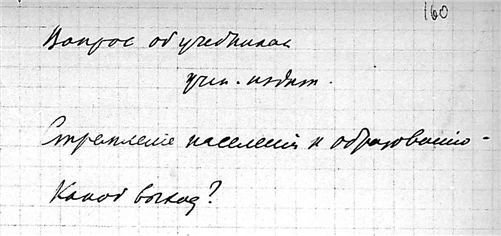 160
Вопрос об учебниках
учен. издат.
Стремление населения к образованию -
Какой выход?